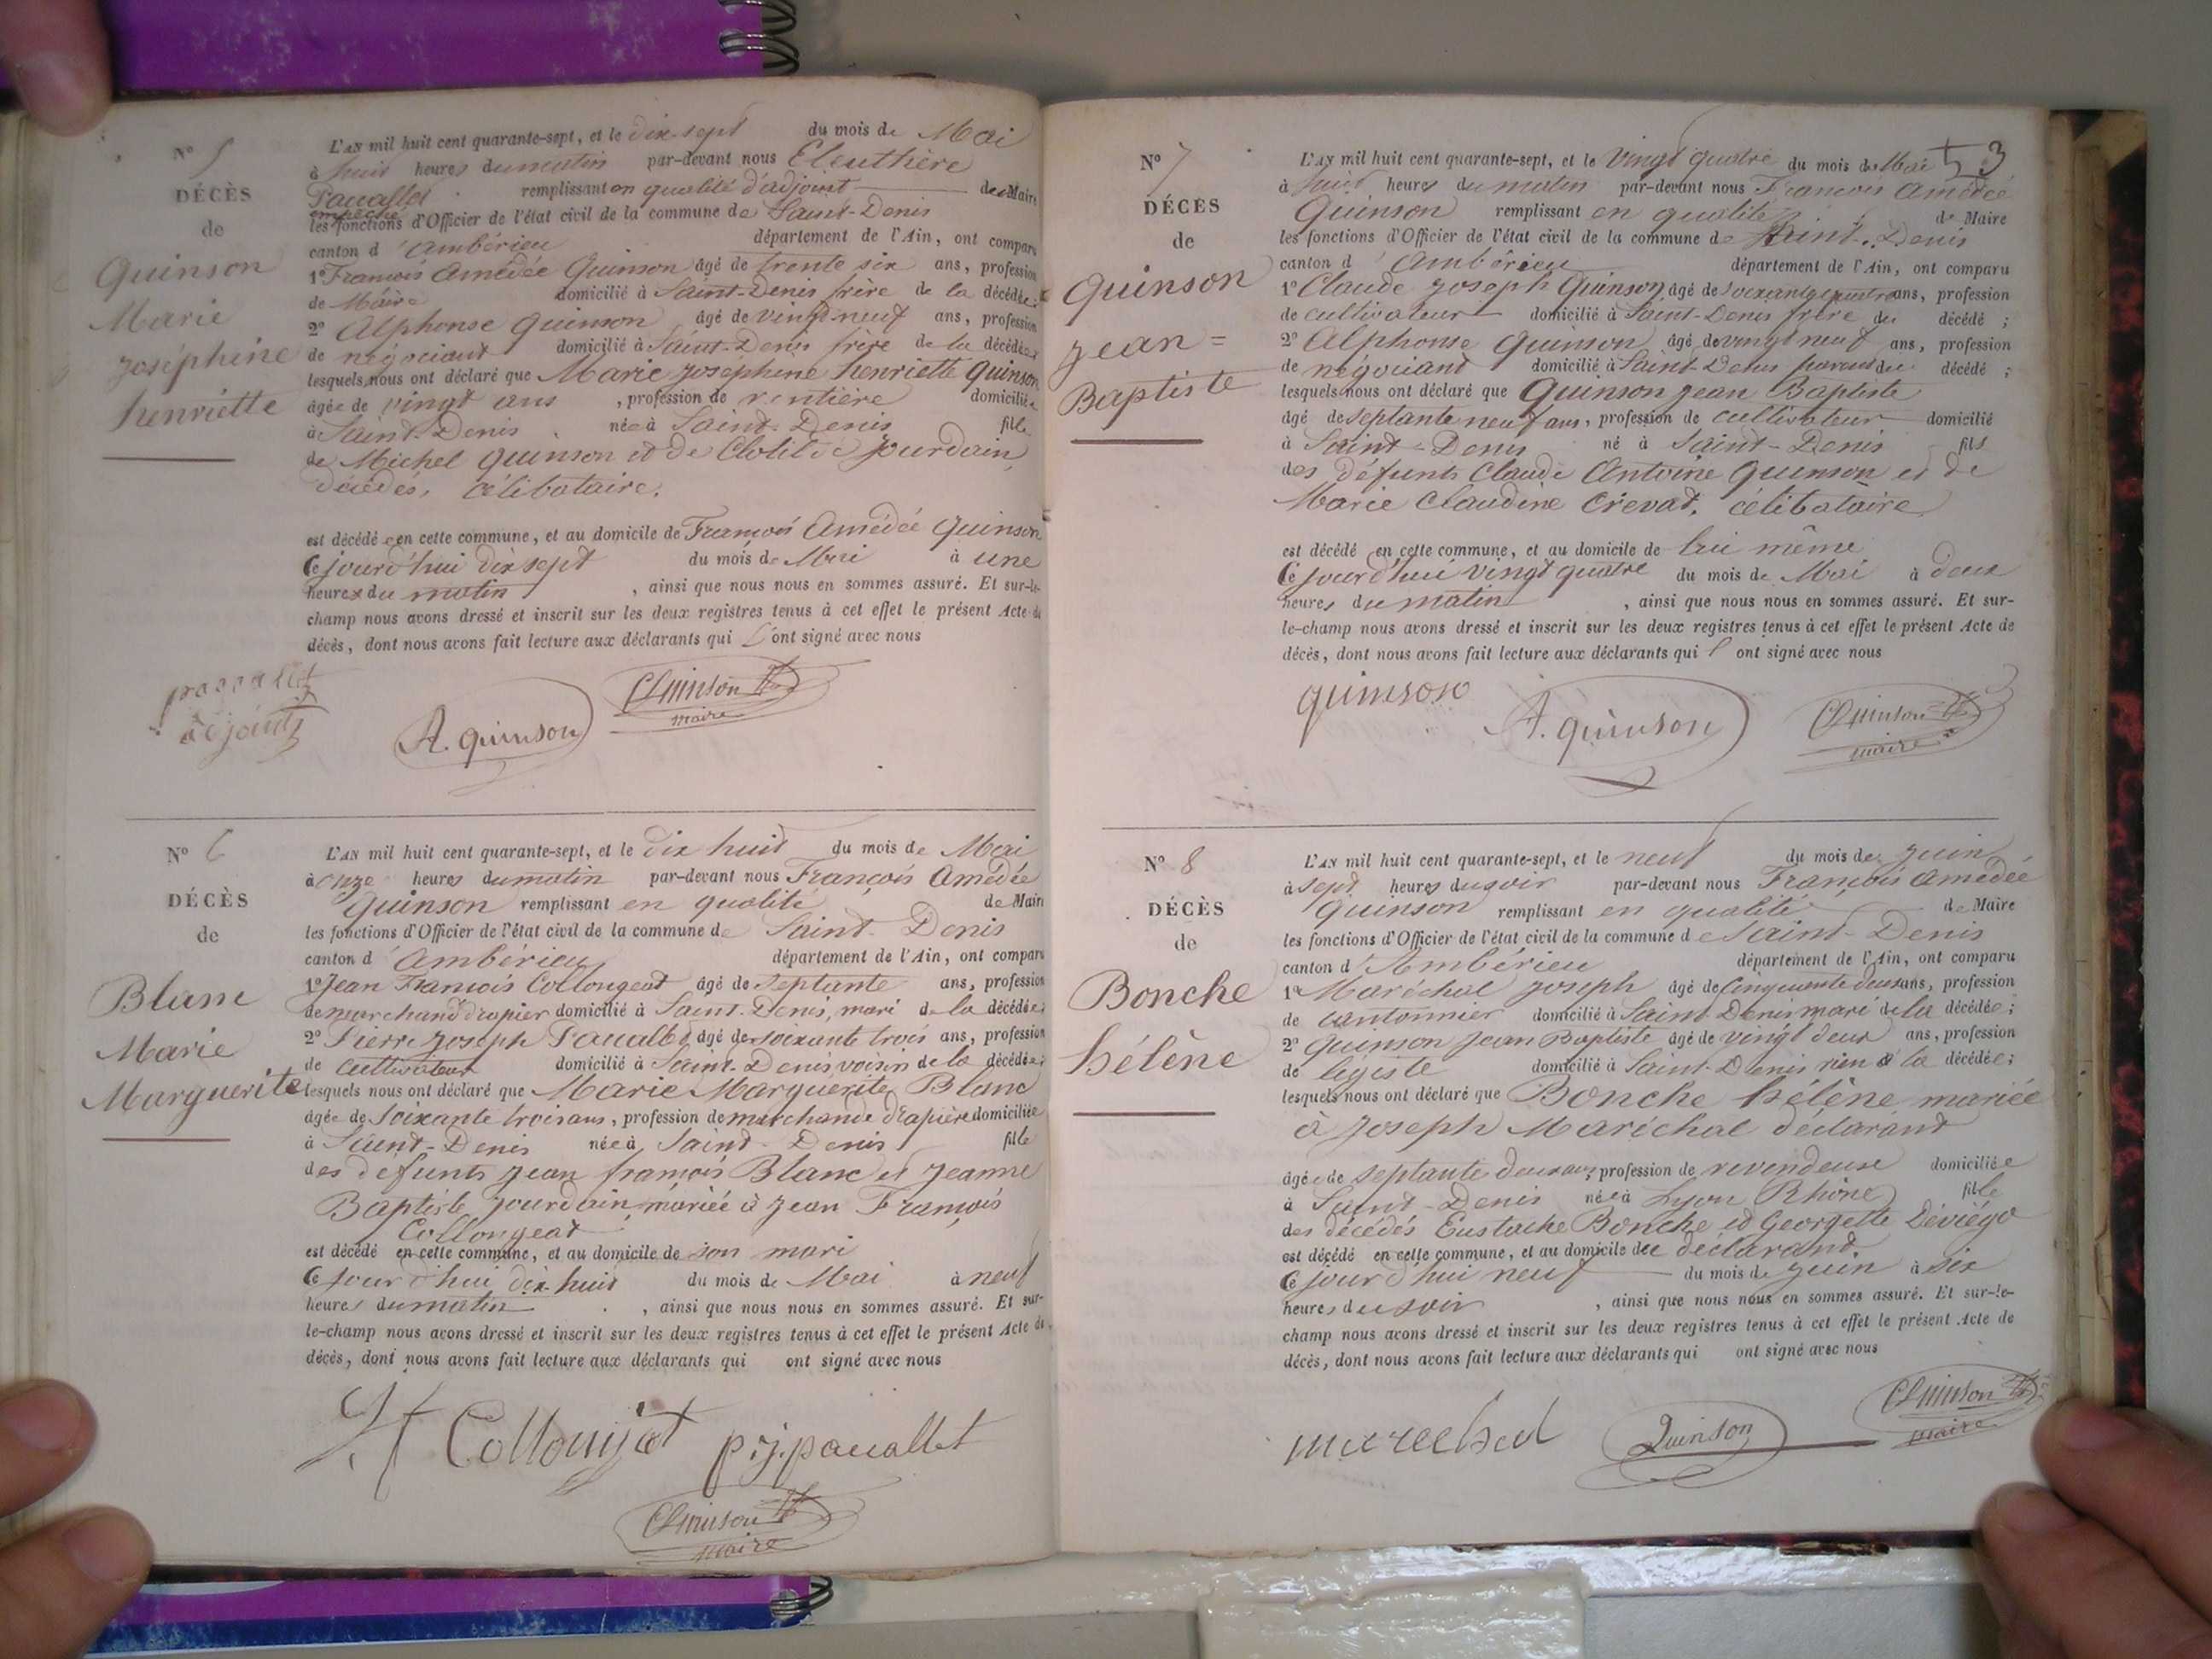 N° 5
DÉCÈS
de
Quinson
Marie
Joséphine
henriette
L'AN mil huit cent quarante-sept, et le dix-sept du mois de Mai
à huit heures du matin par-devant nous Eleuthère
Paucallet remplissant en qualité d'adjoint de Maire
empêché
les fonctions d'Officier de l'état civil de la commune de Saint-Denis
canton d'Ambérieu département de l'Ain, ont comparu
1° François Amédée Quinson âgé de trente six ans, profession
de Maire domicilié à Saint-Denis frère de la décédée;
2° Alphonse Quinson âgé de vingt neuf ans, profession
de négociant domicilié à Saint-Denis frère de la décédée;
lesquels nous ont déclaré que Marie Josephine henriette Quinson
âgée de vingt ans, profession de rentière domiciliée
à Saint-Denis née à Saint-Denis fille
de Michel Quinson et de Clotilde Jourdain,
décédés, célibataire.
est décédée en cette commune, et au domicile de François Amédée Quinson
Ce jourd'hui dix sept du mois de Mai à une
heures du matin, ainsi que nous nous en sommes assuré. Et sur-le-
champ nous avons dressé et inscrit sur les deux registres tenus à cet effet le présent Acte de
décès, dont nous avons fait lecture aux déclarants qui l'ont signé avec nous
paucallet
adjoint
A. quinson
Quinson
maire
N° 6
DÉCÈS
de
Blanc
Marie
Marguerite
L'AN mil huit cent quarante-sept, et le dix huit du mois de Mai
à onze heures du matin par-devant nous François Amédée
Quinson remplissant en qualité de Maire
les fonctions d'Officier de l'état civil de la commune de Saint-Denis
canton d'Ambérieu département de l'Ain, ont comparu
1° Jean François Collongeat âgé de septante ans, profession
de marchand drapier domicilié à Saint-Denis, mari de la décédée;
2° Pierre Joseph Paucallet âgé de soixante trois ans, profession
de cultivateur domicilié à Saint-Denis voisin de la décédée;
lesquels nous ont déclaré que Marie Marguerite Blanc
âgée de soixante trois ans, profession de marchande drapière domiciliée
à Saint-Denis née à Saint-Denis fille
des défunts Jean françois Blanc et Jeanne
Baptiste Jourdain mariée à Jean François
Collongeat
est décédé en cette commune, et au domicile de son mari
Ce jour d'hui dix-huit du mois de Mai à neuf
heures du matin, ainsi que nous nous en sommes assuré. Et sur-
le-champ nous avons dressé et inscrit sur les deux registres tenus à cet effet le présent Acte de
décès, dont nous avons fait lecture aux déclarants qui ont signé avec nous
Collonjat p.j. paucallet
Quinson
maire
3
N° 7
DÉCÈS
de
Quinson
Jean=
Baptiste
L'AN mil huit cent quarante-sept, et le vingt quatre du mois de Mai
à huit heures du matin par-devant nous François Amédée
Quinson remplissant en qualité de Maire
les fonctions d'Officier de l'état civil de la commune de Saint-Denis
canton d'Ambérieu département de l'Ain, ont comparu
1° Claude Joseph Quinson âgé de soixante quatre ans, profession
de cultivateur domicilié à Saint-Denis frère du décédé;
2° Alphonse Quinson âgé de vingt neuf ans, profession
de négociant domicilié à Saint-Denis parent du décédé;
lesquels nous ont déclaré que Quinson Jean Baptiste
âgé de septante neuf ans, profession de cultivateur domicilié
à Saint-Denis né à Saint-Denis fils
des défunts Claude Antoine Quinson et de
Marie Claudine Crevat, célibataire
est décédé en cette commune, et au domicile de lui même
Ce jourd'hui vingt quatre du mois de Mai à deux
heures du matin, ainsi que nous nous en sommes assuré. Et sur-
le-champ nous avons dressé et inscrit sur les deux registres tenus à cet effet le présent Acte de
décès, dont nous avons fait lecture aux déclarants qui l'ont signé avec nous
quinson
A. quinson
Quinson
maire
N° 8
DÉCÈS
de
Bonche
hélène
L'AN mil huit cent quarante-sept, et le neuf du mois de Juin
à sept heures du soir par-devant nous François Amédée
Quinson remplissant en qualité de Maire
les fonctions d'Officier de l'état civil de la commune de Saint-Denis
canton d'Ambérieu département de l'Ain, ont comparu
1° Maréchal Joseph âgé de cinquante deux ans, profession
de cantonnier domicilié à Saint Denis mari de la décédée;
2° Quinson Jean Baptiste âgé de vingt deux ans, profession
de légiste domicilié à Saint-Denis rien à la décédée;
lesquels nous ont déclaré que Bonche hélène mariée
à Joseph Maréchal déclarant
âgée de septante deux ans, profession de revendeuse domiciliée
à Saint-Denis née à Lyon Rhône fille
des décédés Eustache Bonche et Georgette Déviégo
est décédé en cette commune, et au domicile du déclarant.
Ce jourd'hui neuf du mois de Juin à six
heures du soir, ainsi que nous nous en sommes assuré. Et sur-le-
champ nous avons dressé et inscrit sur les deux registres tenus à cet effet le présent Acte de
décès, dont nous avons fait lecture aux déclarants qui ont signé avec nous
marechal
Quinson
Quinson
maire